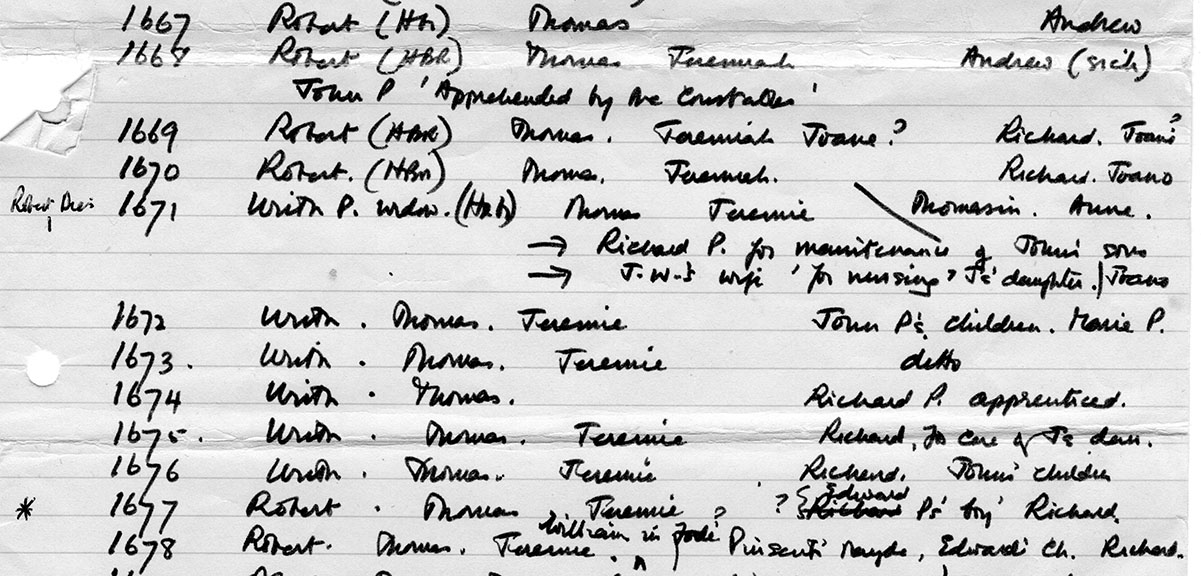 1667 Robert (HBR) Thomas Andrew
1668 Robert (HBR) Thomas Jeremiah Andrew (sick)
John P 'Apprehended by the Constables'
1669 Robert (HBR) Thomas. Jeremiah Joane? Richard. Joans?
1670 Robert. (HBR) Thomas. Jeremiah. Richard. Joano
Robert Dies 1671 Urith P. widow. (HBR) Thomas Jeremie Thomasin. Anne.
→ Richard P. for maintenance of John's sons
→ J. W-s wife 'for nursing' J's daughter. Joano
1672 Urith. Thomas. Jeremie John P's children. Marie P.
1673. Urith. Thomas. Jeremie ditto
1674 Urith. Thomas. Richard P. apprenticed.
1675. Urith. Thomas. Jeremie Richard, for care of J's daur.
1676 Urith. Thomas. Jeremie Richard. John's children
* 1677 Robert. Thomas Jeremie ? ? Edward P's boy Richard.
1678 Robert. Thomas. Jeremie. William in Pinsent's mayde, Edward's Ch. Richard.